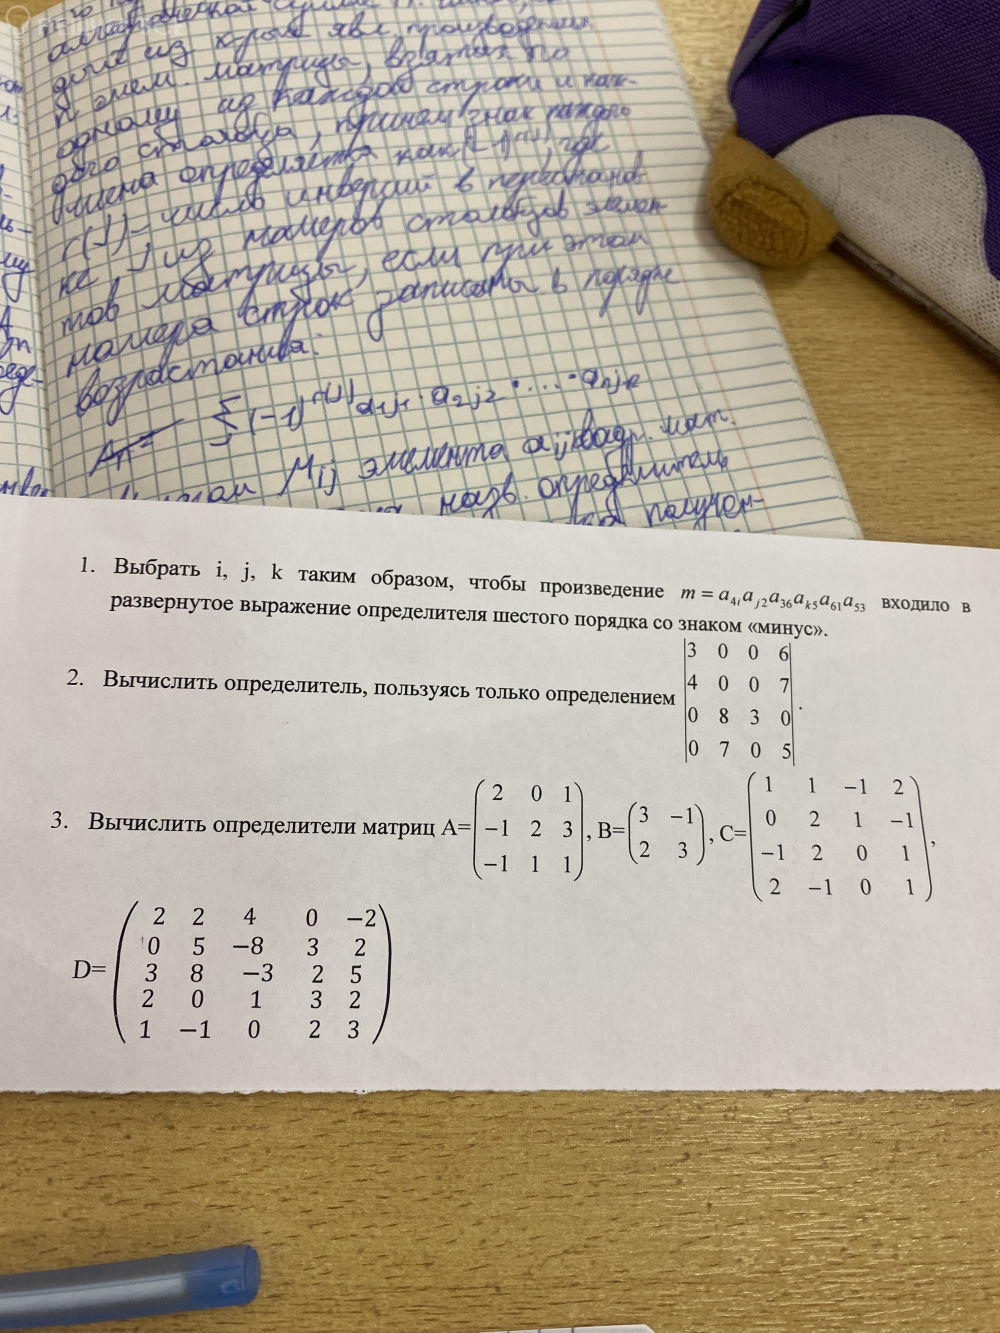 алгебраической суммы
дый из к-рых явл. произведением
n элем. матрицы, взятых по
одному из каждой строки и каж-
дого столбца, причем знак каждого
члена определяется как (-1)^r(J), где
r(J) - число инверсий в перестанов-
ке J из номеров столбцов элемен-
тов матрицы, если при этом
номера строк записаны в порядке
возрастания:
∑ (-1)^r(J) a₁j₁ · a₂j₂ · .... · anjn
Mij элемента aij квадр. мат.
назв. определитель
получен-
1. Выбрать i, j, k таким образом, чтобы произведение m = a₄ᵢaⱼ₂a₃₆aₖ₅a₆₁a₅₃ входило в
развернутое выражение определителя шестого порядка со знаком «минус».
2. Вычислить определитель, пользуясь только определением
|3 0 0 6|
|4 0 0 7|
|0 8 3 0|
|0 7 0 5|.
3. Вычислить определители матриц A=
(2 0 1)
(−1 2 3)
(−1 1 1)
, B=
(3 −1)
(2 3)
, C=
(1 1 −1 2)
(0 2 1 −1)
(−1 2 0 1)
(2 −1 0 1)
,
D=
(2 2 4 0 −2)
(0 5 −8 3 2)
(3 8 −3 2 5)
(2 0 1 3 2)
(1 −1 0 2 3)